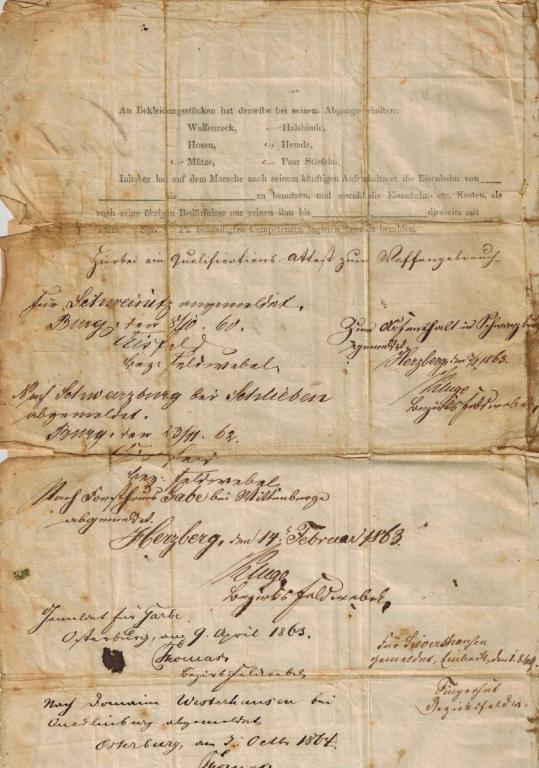 An Bekleidungsstücken hat derselbe bei seinem Abgange erhalten:
Waffenrock, Halsbinde,
Hosen, Hemde,
Mütze, Paar Stiefeln.
Inhaber hat auf dem Marsche nach seinem künftigen Aufenthaltsort die Eisenbahn von
bis zu benutzen, und sowohl die Eisenbahn- etc. Kosten, als
auch seine übrigen Bedürfnisse aus seinen ihm bis diesseits mit
Sgr. Pf. Competenzen zu bezahlen.
Hierbei ein Qualifications-Attest zum Waffengebrauch
Für Schweinitz angemeldet.
Burg, den 3/10. 60.
Bez. Feldwebel.
Zum Aufenthalt in Schwarzburg
gemeldet.
Herzberg, den 1863.
Kluge
Bezirksfeldwebel
Nach Schwarzburg bei Schlieben
abgemeldet.
Burg, den 23/11. 62.
Bez. Feldwebel
Nach Forsthaus Gabe bei Wittenberge
abgemeldet.
Herzberg, den 14. Februar 1863.
Kluge
Bezirksfeldwebel
Gemeldet für Garbe.
Osterburg, am 9. April 1863.
Thomas
Bezirksfeldwebel
Für Sievershausen
gemeldet, Einbeck, den 1.
Fingerhut
Bezirksfeldw.
Nach Domaine Westerhausen bei
Quedlinburg abgemeldet
Osterburg, am 3. Octb 1864.
Thomas